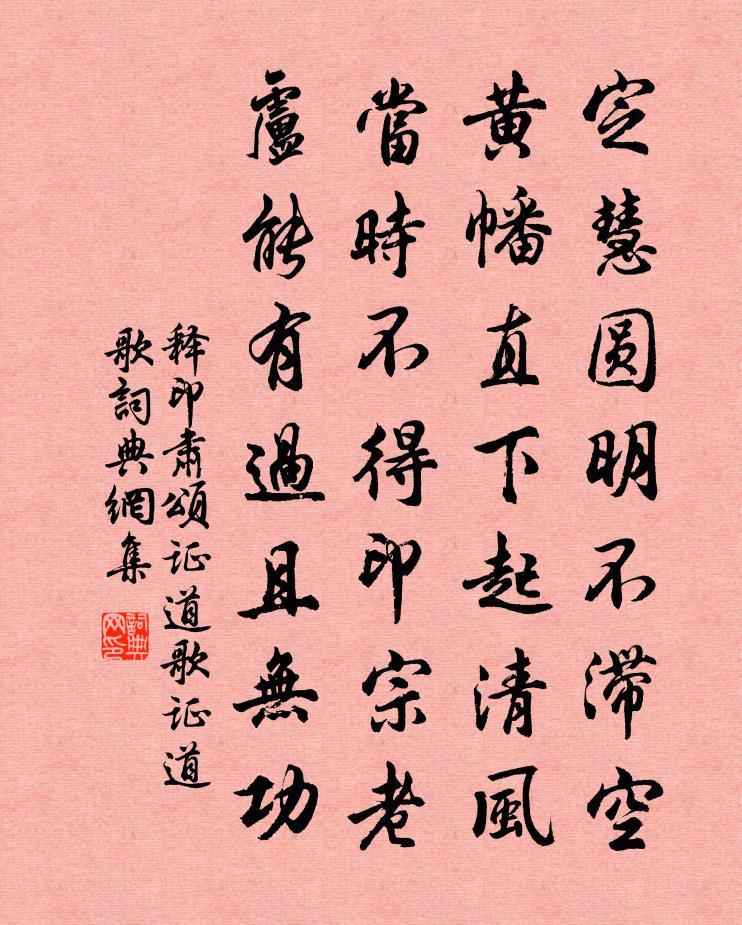 定慧圆明不滞空
黄幡直下起清風
當時不得印宗老
盧能有過且無功
释印肃頌证道歌证道
歌詞典網集
詞典
网印